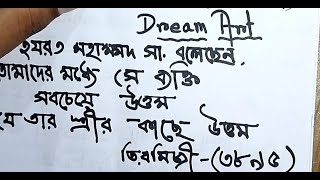 Dream Art
হযরত মহাম্মদ সা. বলেছেন,
তোমাদের মধ্যে সে ব্যক্তি
সবচেয়ে উত্তম
যে তার স্ত্রীর কাছে উত্তম
তিরমিজী-(৩৮৯৫)